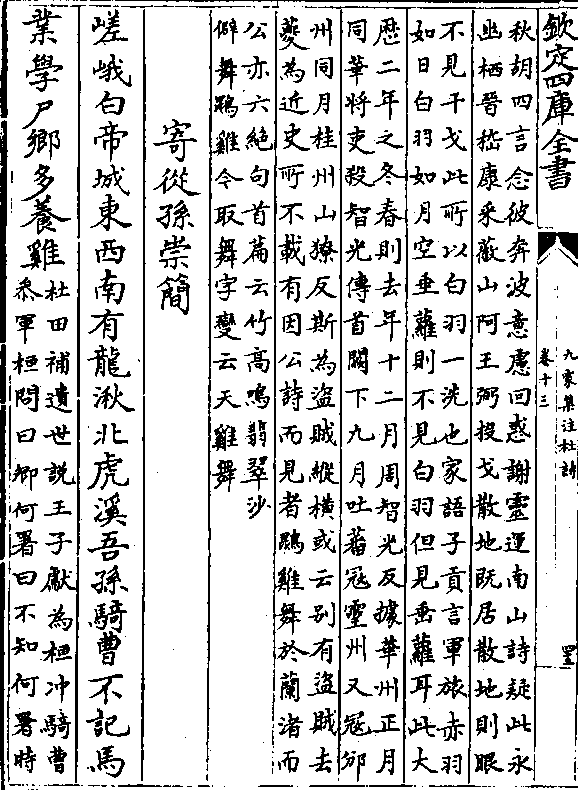 欽定四庫全書
秋胡四言念彼奔波意慮回惑謝靈運南山詩疑此永
幽栖晉嵇康采薇山阿王弼投戈散地既居散地則眼
不見干戈此所以白羽一洗也家語子貢言軍旅赤羽
如日白羽如月空垂蘿則不見白羽但見垂蘿耳此大
厯二年之冬春則去年十二月周智光反據華州正月
同華將吏殺智光傳首闕下九月吐蕃冦靈州又冦邠
州同月桂州山獠反斯為盜賊縱横或云别有盜賊去
夔為近史所不載有因公詩而見者鵾雞舞於蘭渚而
公亦六絶句首篇云竹高鳴翡翠沙
僻舞鵾雞今取舞字變云天雞舞
寄從孫崇簡
嵯峨白帝城東西南有龍湫北虎溪吾孫騎曹不記馬
業學尸鄉多養雞
杜田補遺世説王子猷為桓冲騎曹
叅軍桓問曰卿何署曰不知何署時
九家集注杜詩
卷十三